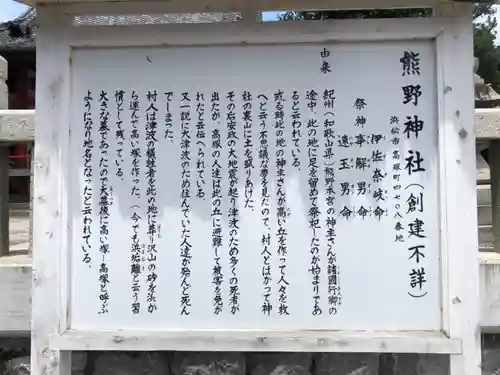 熊野神社（創建不詳）
浜松市高塚町四七〇八番地
伊佐奈岐命
祭神 事解男命
速玉男命
由来
紀州（和歌山県）熊野本宮の神主さんが諸国行脚の
途中、此の地に足を留めて祭祀したのが始まりであ
ると云われている。
或る時此の地の神主さんが高い丘を作って人々を救
へと云う不思議な夢を見たので、村人とはかって神
社の裏山に土を盛りあげた。
その后安政の大地震が起り津波のため多くの死者が
出たが、高塚の人達は此の丘に避難して被害を免が
れたと云伝へられている。
又一説に大津波のため住んでいた人達が殆んど死ん
でしまった。
村人は津波の犠牲者を此の地に葬り沢山の砂を浜か
ら運んで高い塚を作った。（今でも浜垢離と云う習
慣として残っている。）
大きな墓であったので大墓後に高い塚―高塚と呼ぶ
ようになり地名となったと云われている。